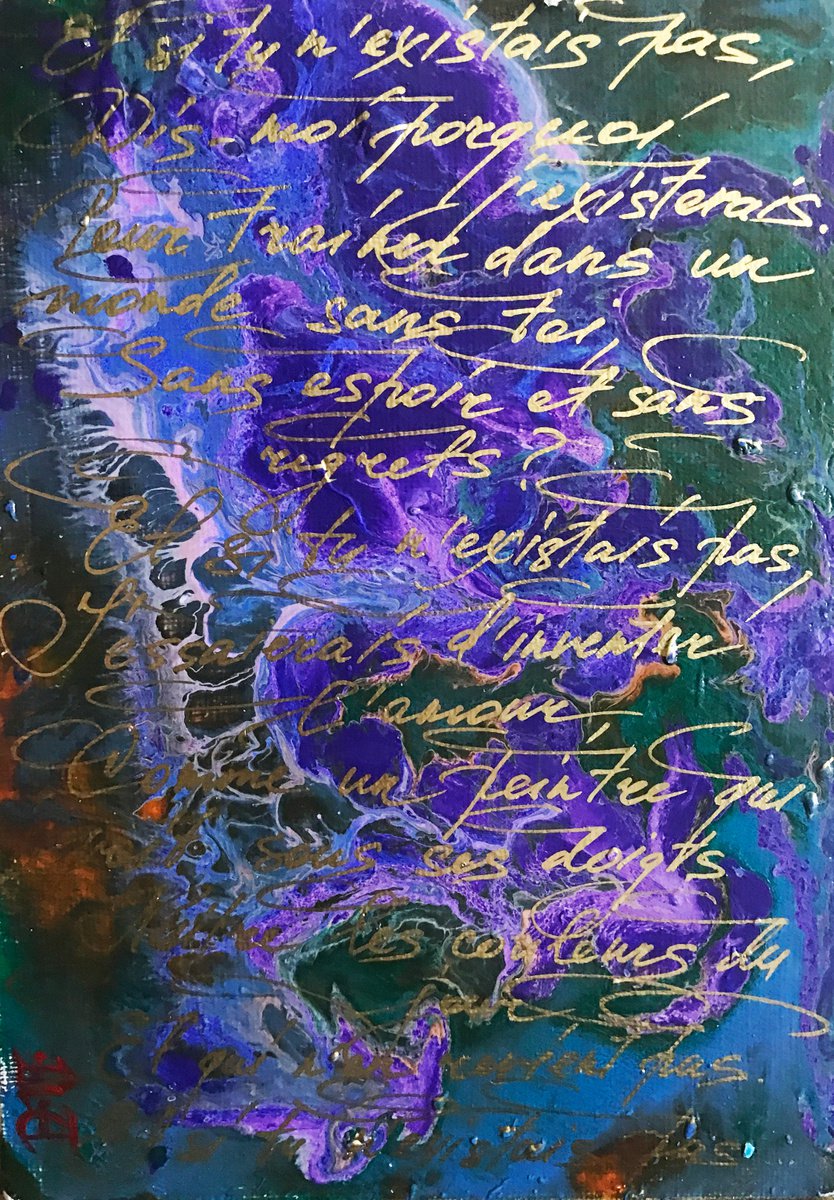 Et si tu n'existais pas,
Dis-moi porquoi
j'existerais.
Pour traîner dans un
monde sans toi,
Sans espoir et sans
regrets?
Et si tu n'existais pas,
J'essaierais d'inventer
l'amour,
Comme un peintre qui
voit sous ses doigts
Naître les couleurs du
jour,
Et qui n'en revient pas
Et si tu n'existais pas